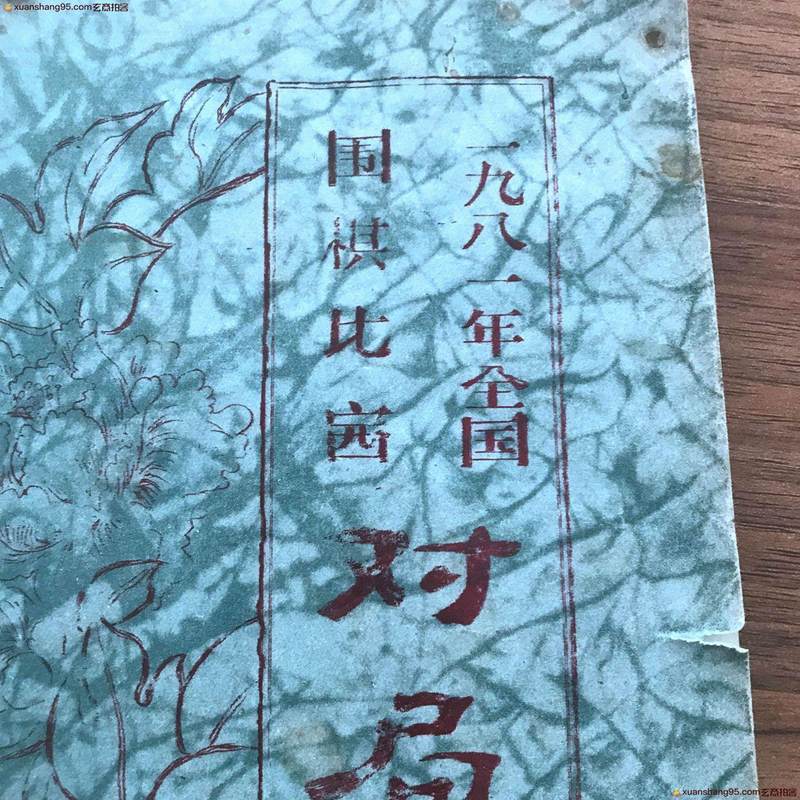 xuanshang95.com玄商拍客
一九八一年全国
围棋比赛
对局
xuanshang95.com玄商拍客